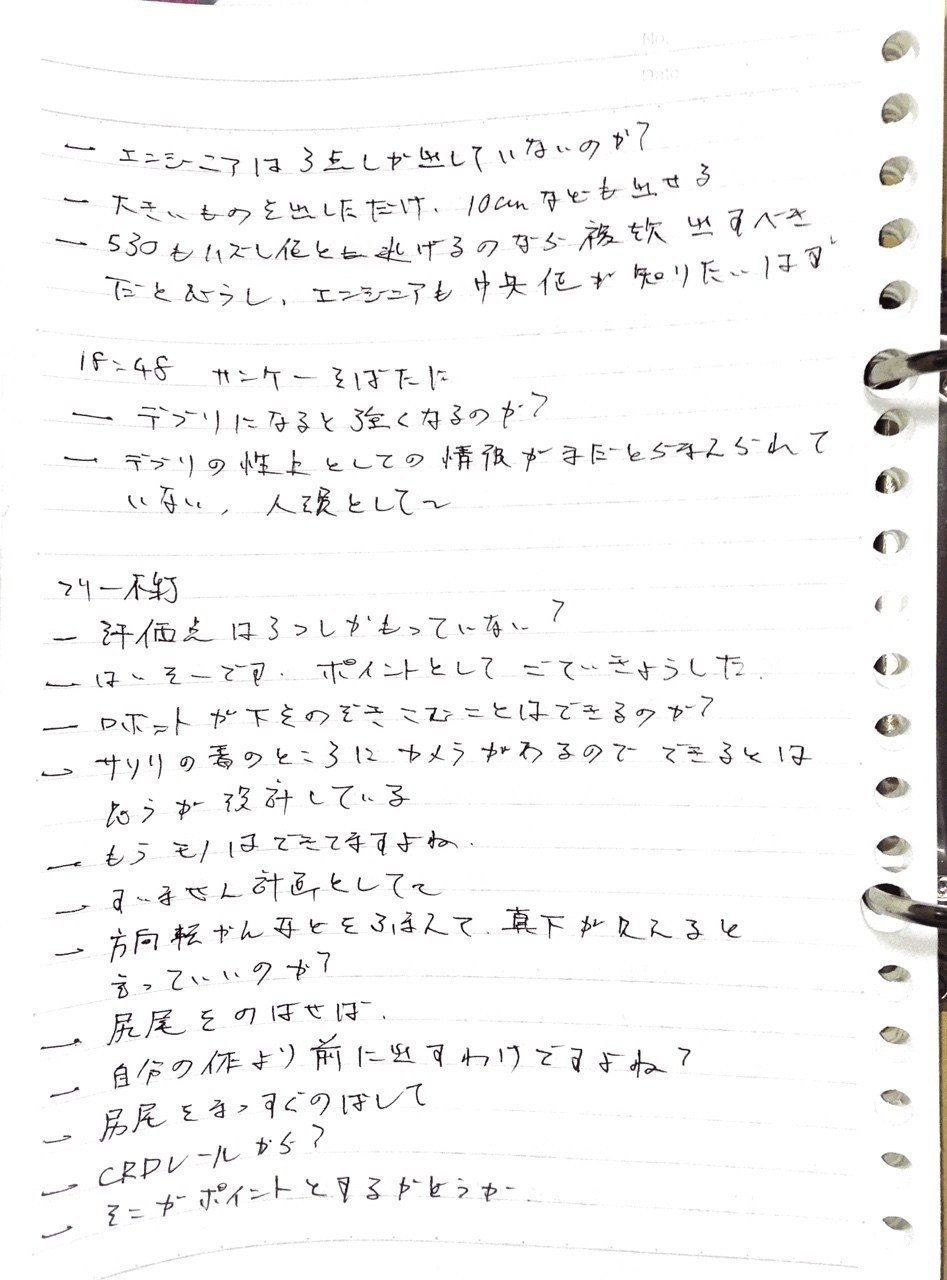 No.
Date
— エンジニアは3点しか出していないのか?
— 大きいものを出しただけ、10cmなども出せる
— 530もハズし値と逃げるのなら複数出すべき
だと思うし、エンジニアも中央値が知りたいはず
18:48 サンケーそばたに
— デブリになると強くなるのか?
— デブリの性上としての情報がまだとらまえられて
いない、人類として〜
フリー木野
— 評価点は3つしかもっていない?
— はいそーです. ポイントとして
— ロボットが下をのぞきこむことはできるのか?
— サソリの着のところにカメラがあるのでできるとは
思うが設計している
— もうモノはできてますよね.
— すいません計画として〜
— 方向転かんなどをふまえて、真下が見えると
言っていいのか?
— 尻尾をのばせば.
— 自分の体より前に出すわけですよね?
— 尻尾をまっすぐのばして
— CRDレールから?
— そこがポイントとするかどうか